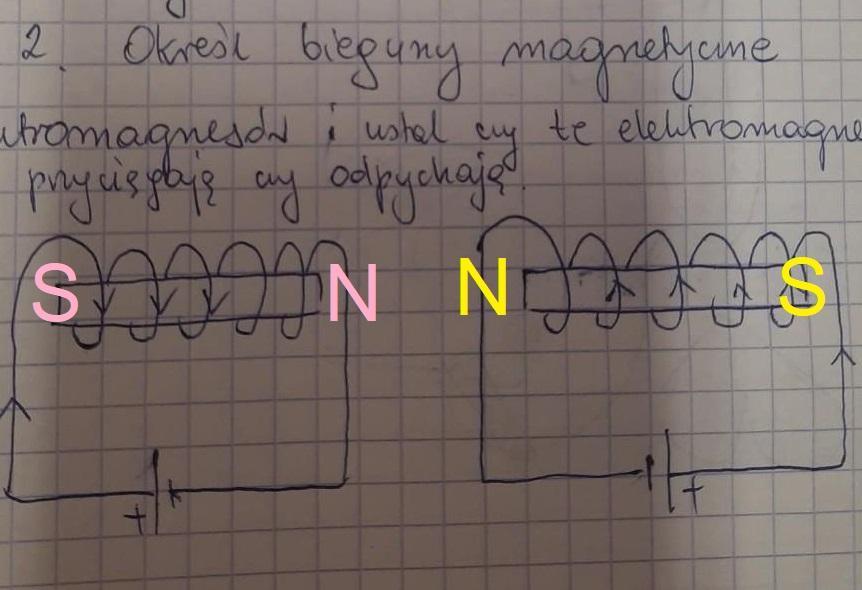 2. Określ bieguny magnetyczne
utromagnesów i ustal czy te elektromagne
przyciągają czy odpychają.
S N N S
+ +